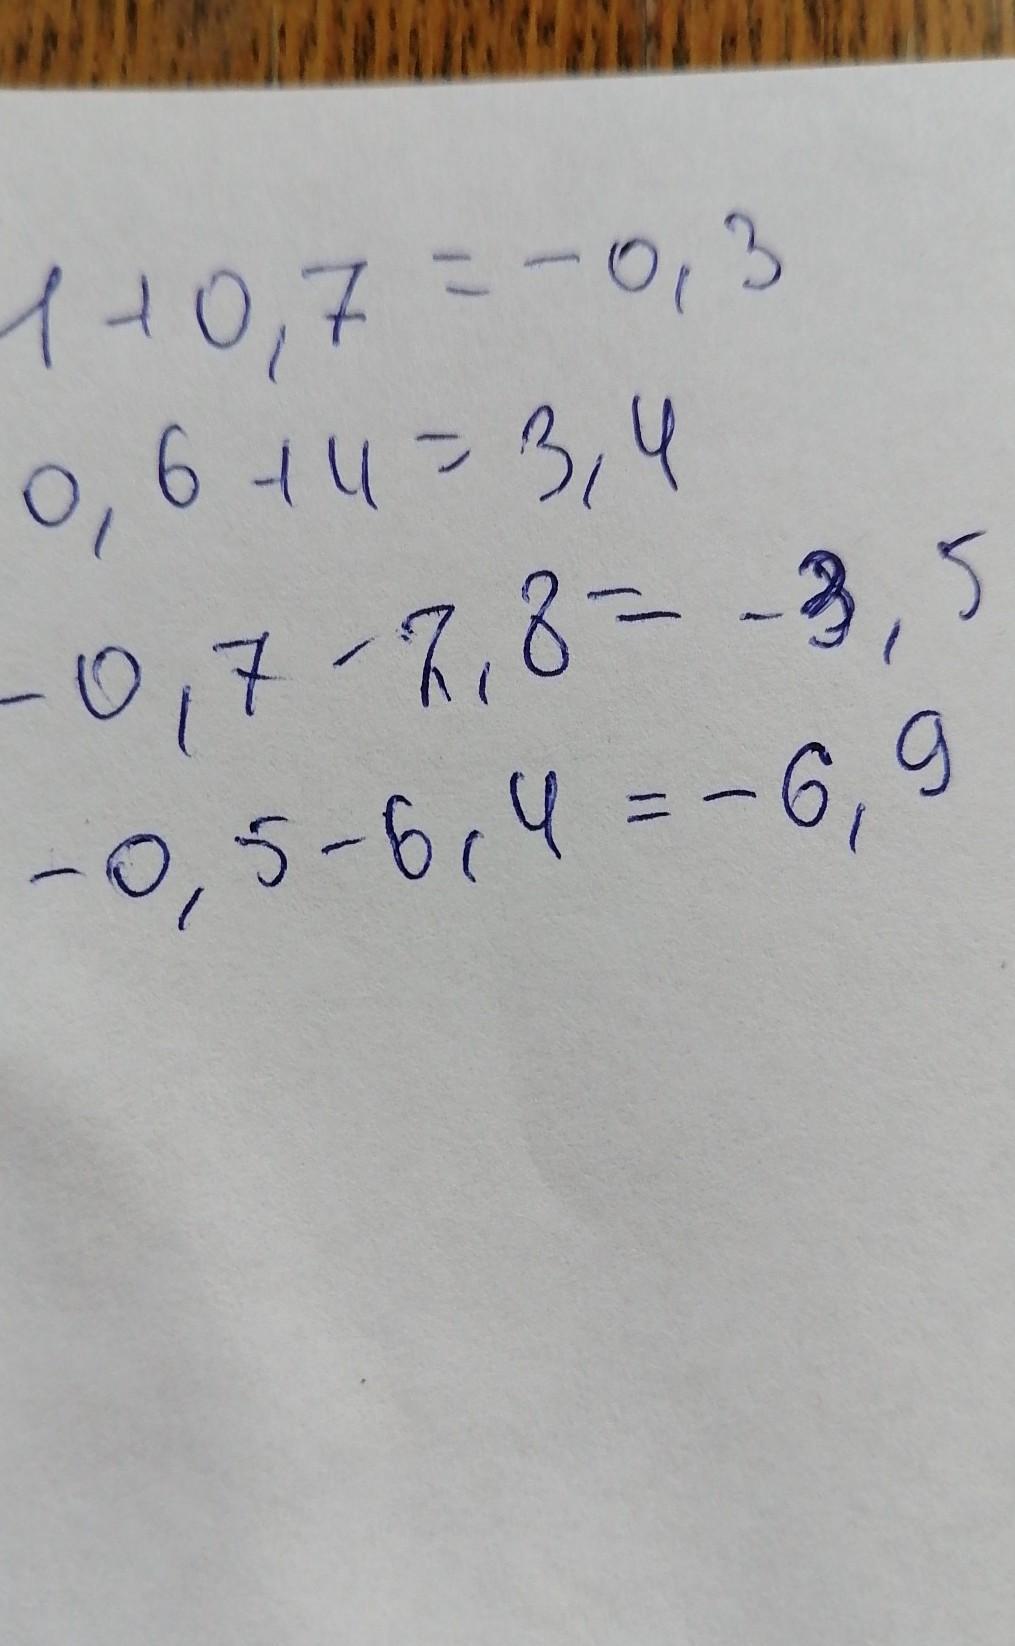 1+0,7=-0,3
0,6+4=3,4
-0,7-2,8=-3,5
-0,5-6,4=-6,9